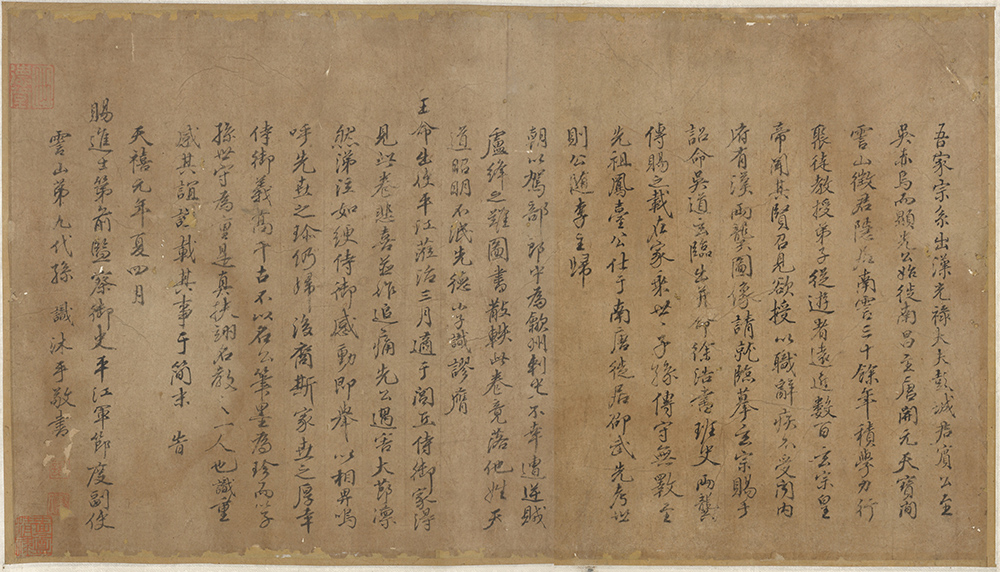 吾家宗系出漢光祿大夫彭城君賓公至
吳赤烏而顯先公始徙南昌至唐開元天寶間
雲山徵君隱居南雲三十餘年積學力行
聚徒教授弟子從遊者遠近數百玄宗皇
帝聞其賢召見欲授以職辭疾不受內
府有漢兩龔圖像請就臨摹玄宗賜于
詔命吳道玄臨生并命徐浩書班史兩龔
傳賜之載在家乘世世子孫傳守無斁至
先祖鳳臺公仕于南唐徙居邵武先考世
則公隨李主歸
朝以駕部郎中為歙州刺史不幸遭逆賊
盧絳之難圖書散軼此卷竟落他姓天
道昭明不泯先德小子識謬膺
王命出使平江蒞治三月適于閭丘侍御家得
見此卷悲喜並作追痛先公遇害大節凜
然涕泣如綆侍御感動即舉以相畀嗚
呼先世之珍仍歸後裔斯家世之厚幸
侍御義高千古不以名公筆墨為珍而以子
孫世守為重是真扶翊名教之一人也識重
感其誼謹載其事于簡末 旹
天禧元年夏四月
賜進士第前監察御史平江軍節度副使
雲山第九代孫 識沐手敬書